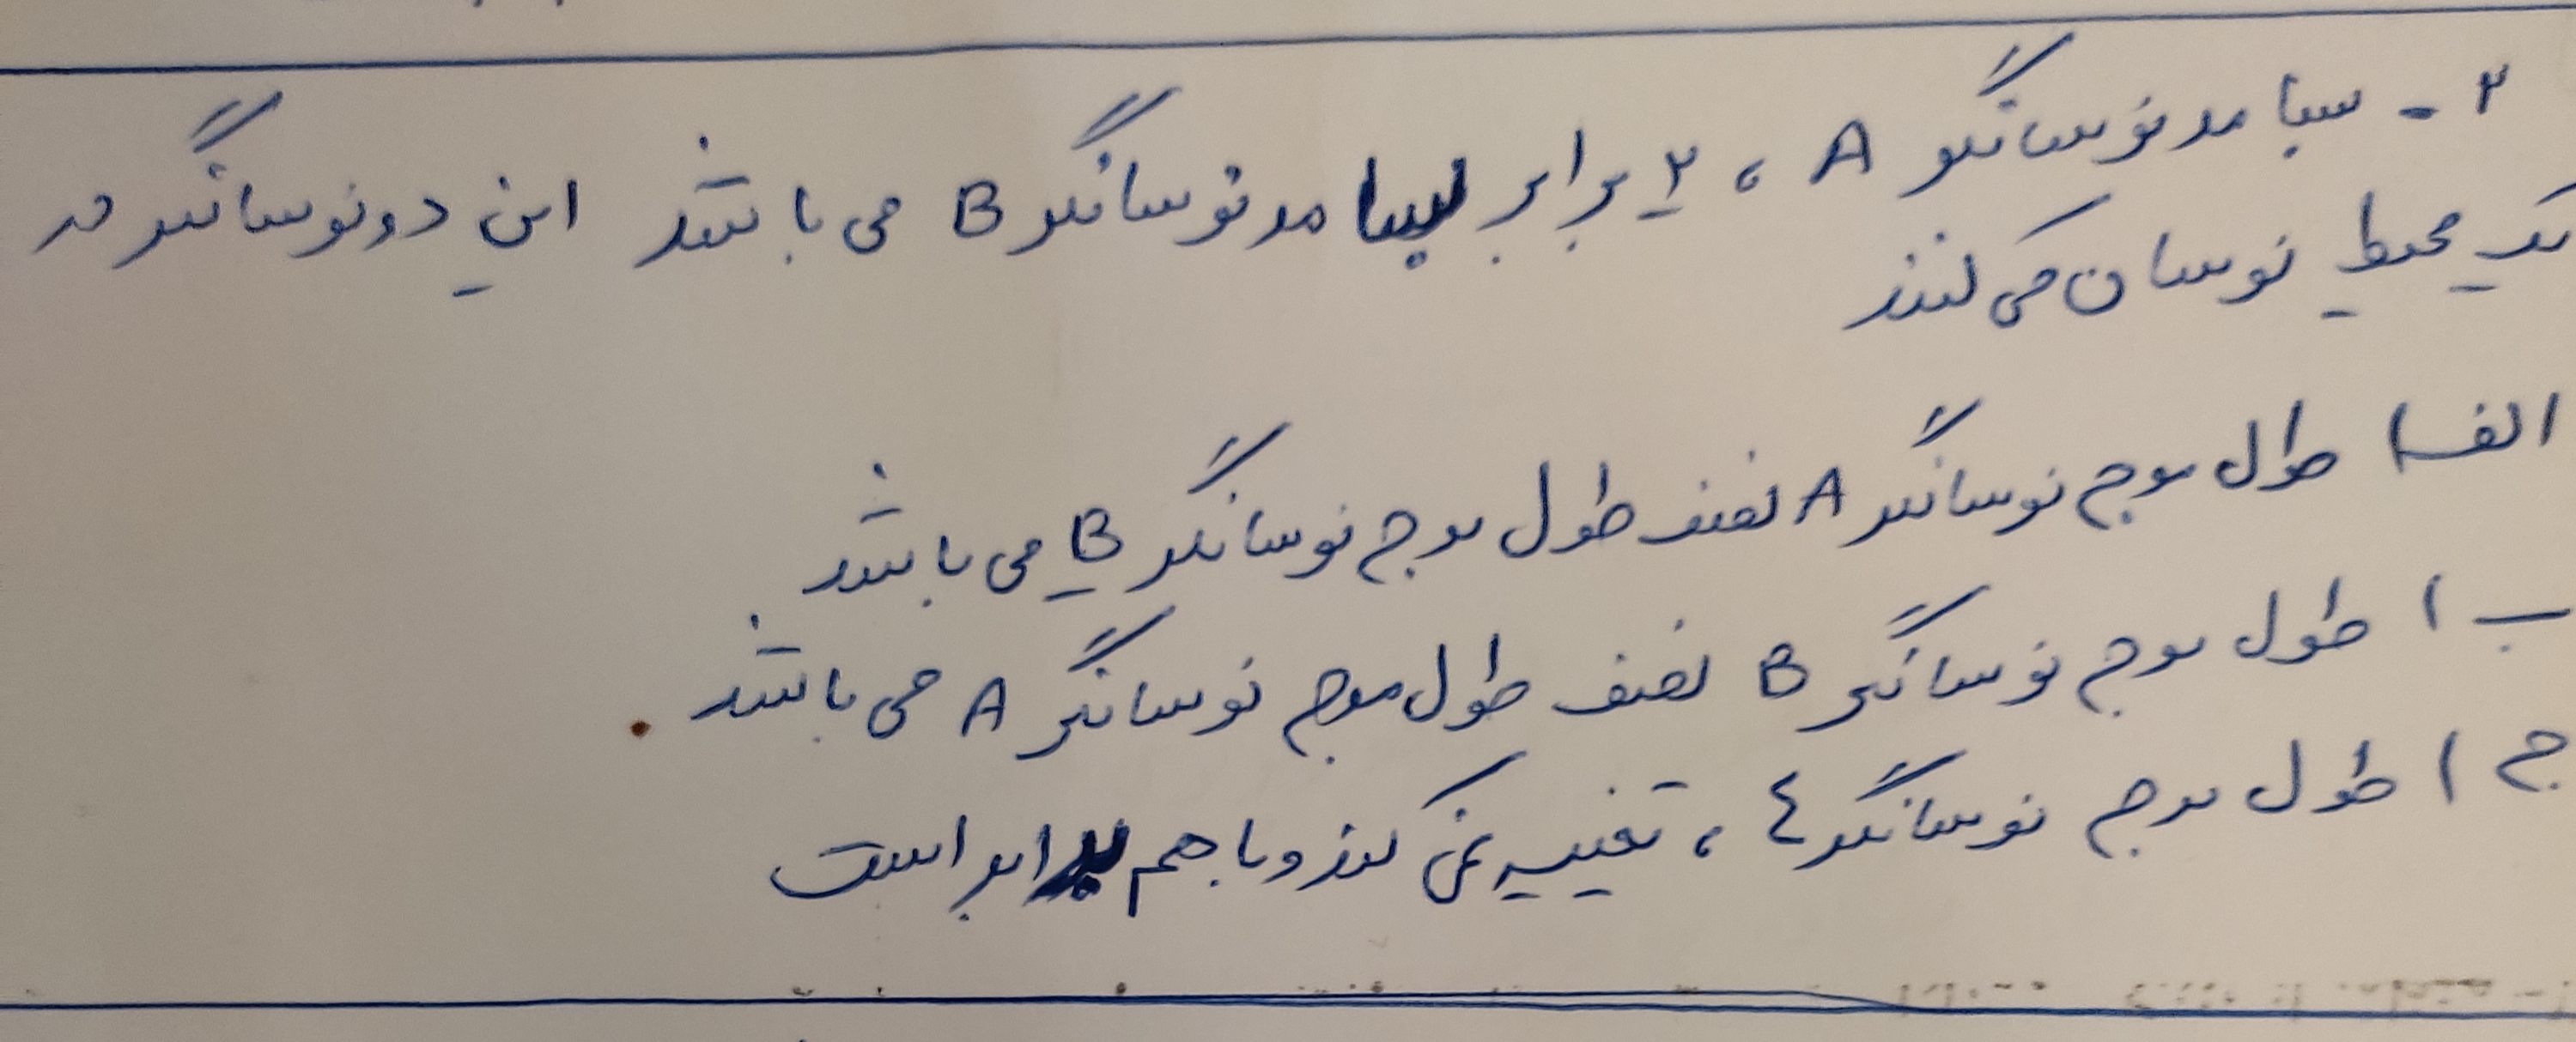 ۲ - بسامد نوسانگر A ، ۲ برابر بسامد نوسانگر B می باشد این دو نوسانگر در
یک محیط نوسان می کنند
الف) طول موج نوسانگر A نصف طول موج نوسانگر B می باشد
ب) طول موج نوسانگر B نصف طول موج نوسانگر A می باشد
ج) طول موج نوسانگر ، تغییر نمی کند و با هم برابر است